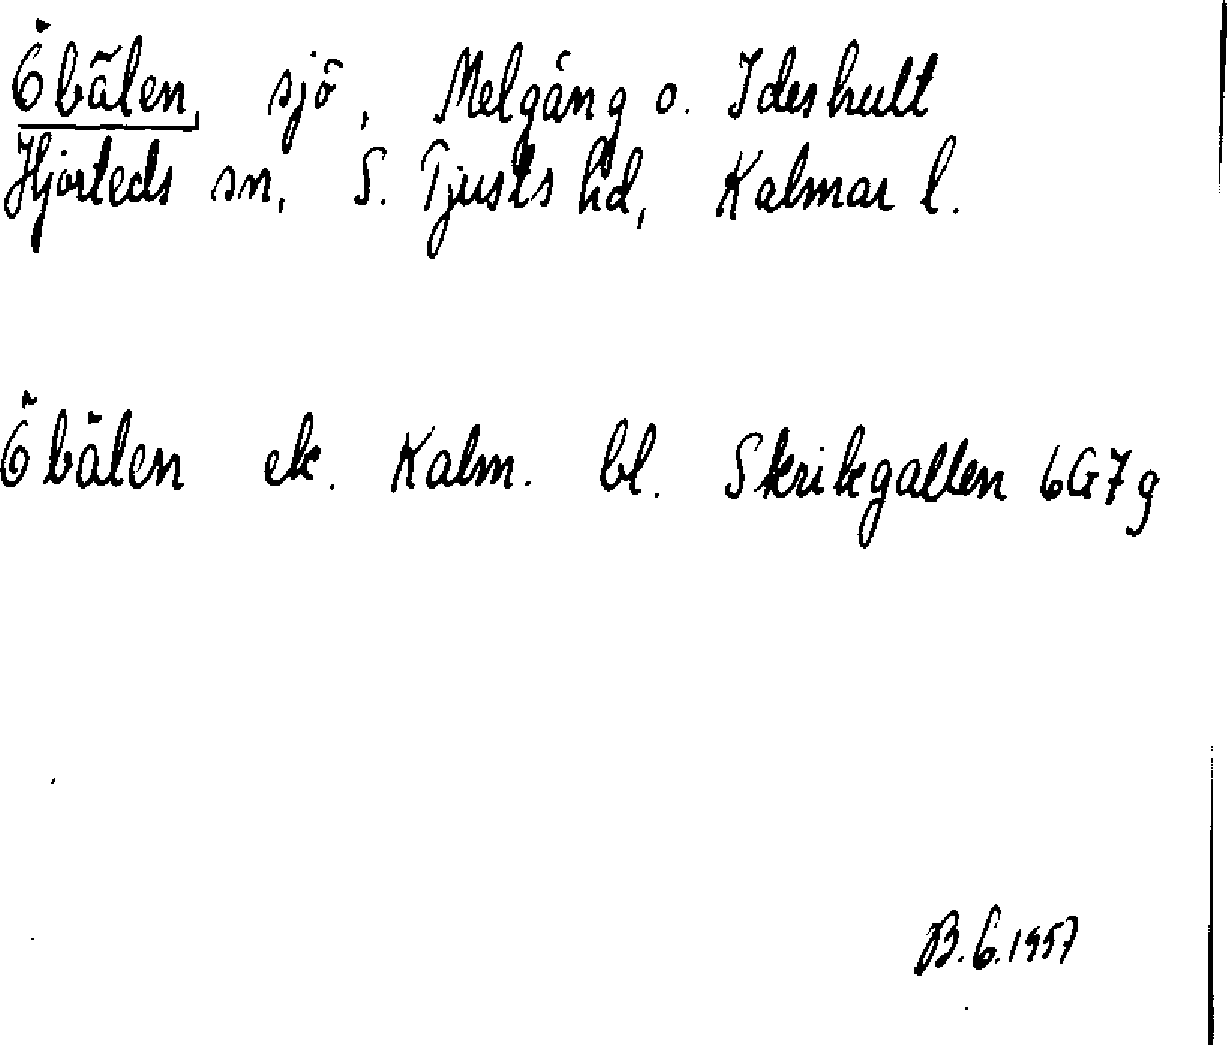 Öbälen, sjö, Melgång o. Ideshult
Hjorteds sn, S. Tjusts hd, Kalmar l.
Öbälen ek. Kalm. bl. Skrikgallen 6G7g
B.G.1957